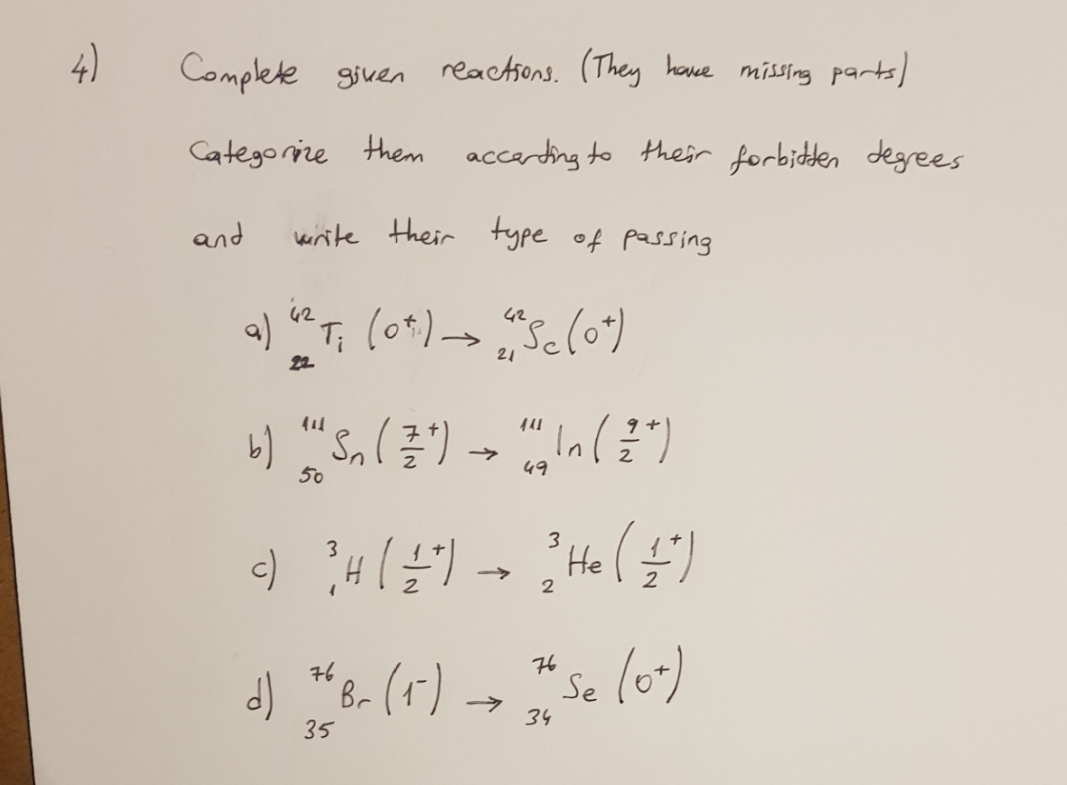 4) Complete given reactions. (They have missing parts)
Categorize them according to their forbidden degrees
and write their type of passing
a) ⁴²₂₂Ti (0⁺) → ⁴²₂₁Sc (0⁺)
b) ¹¹¹₅₀Sn (7/2⁺) → ¹¹¹₄₉In (9/2⁺)
c) ³₁H (1/2⁺) → ³₂He (1/2⁺)
d) ⁷⁶₃₅Br (1⁻) → ⁷⁶₃₄Se (0⁺)